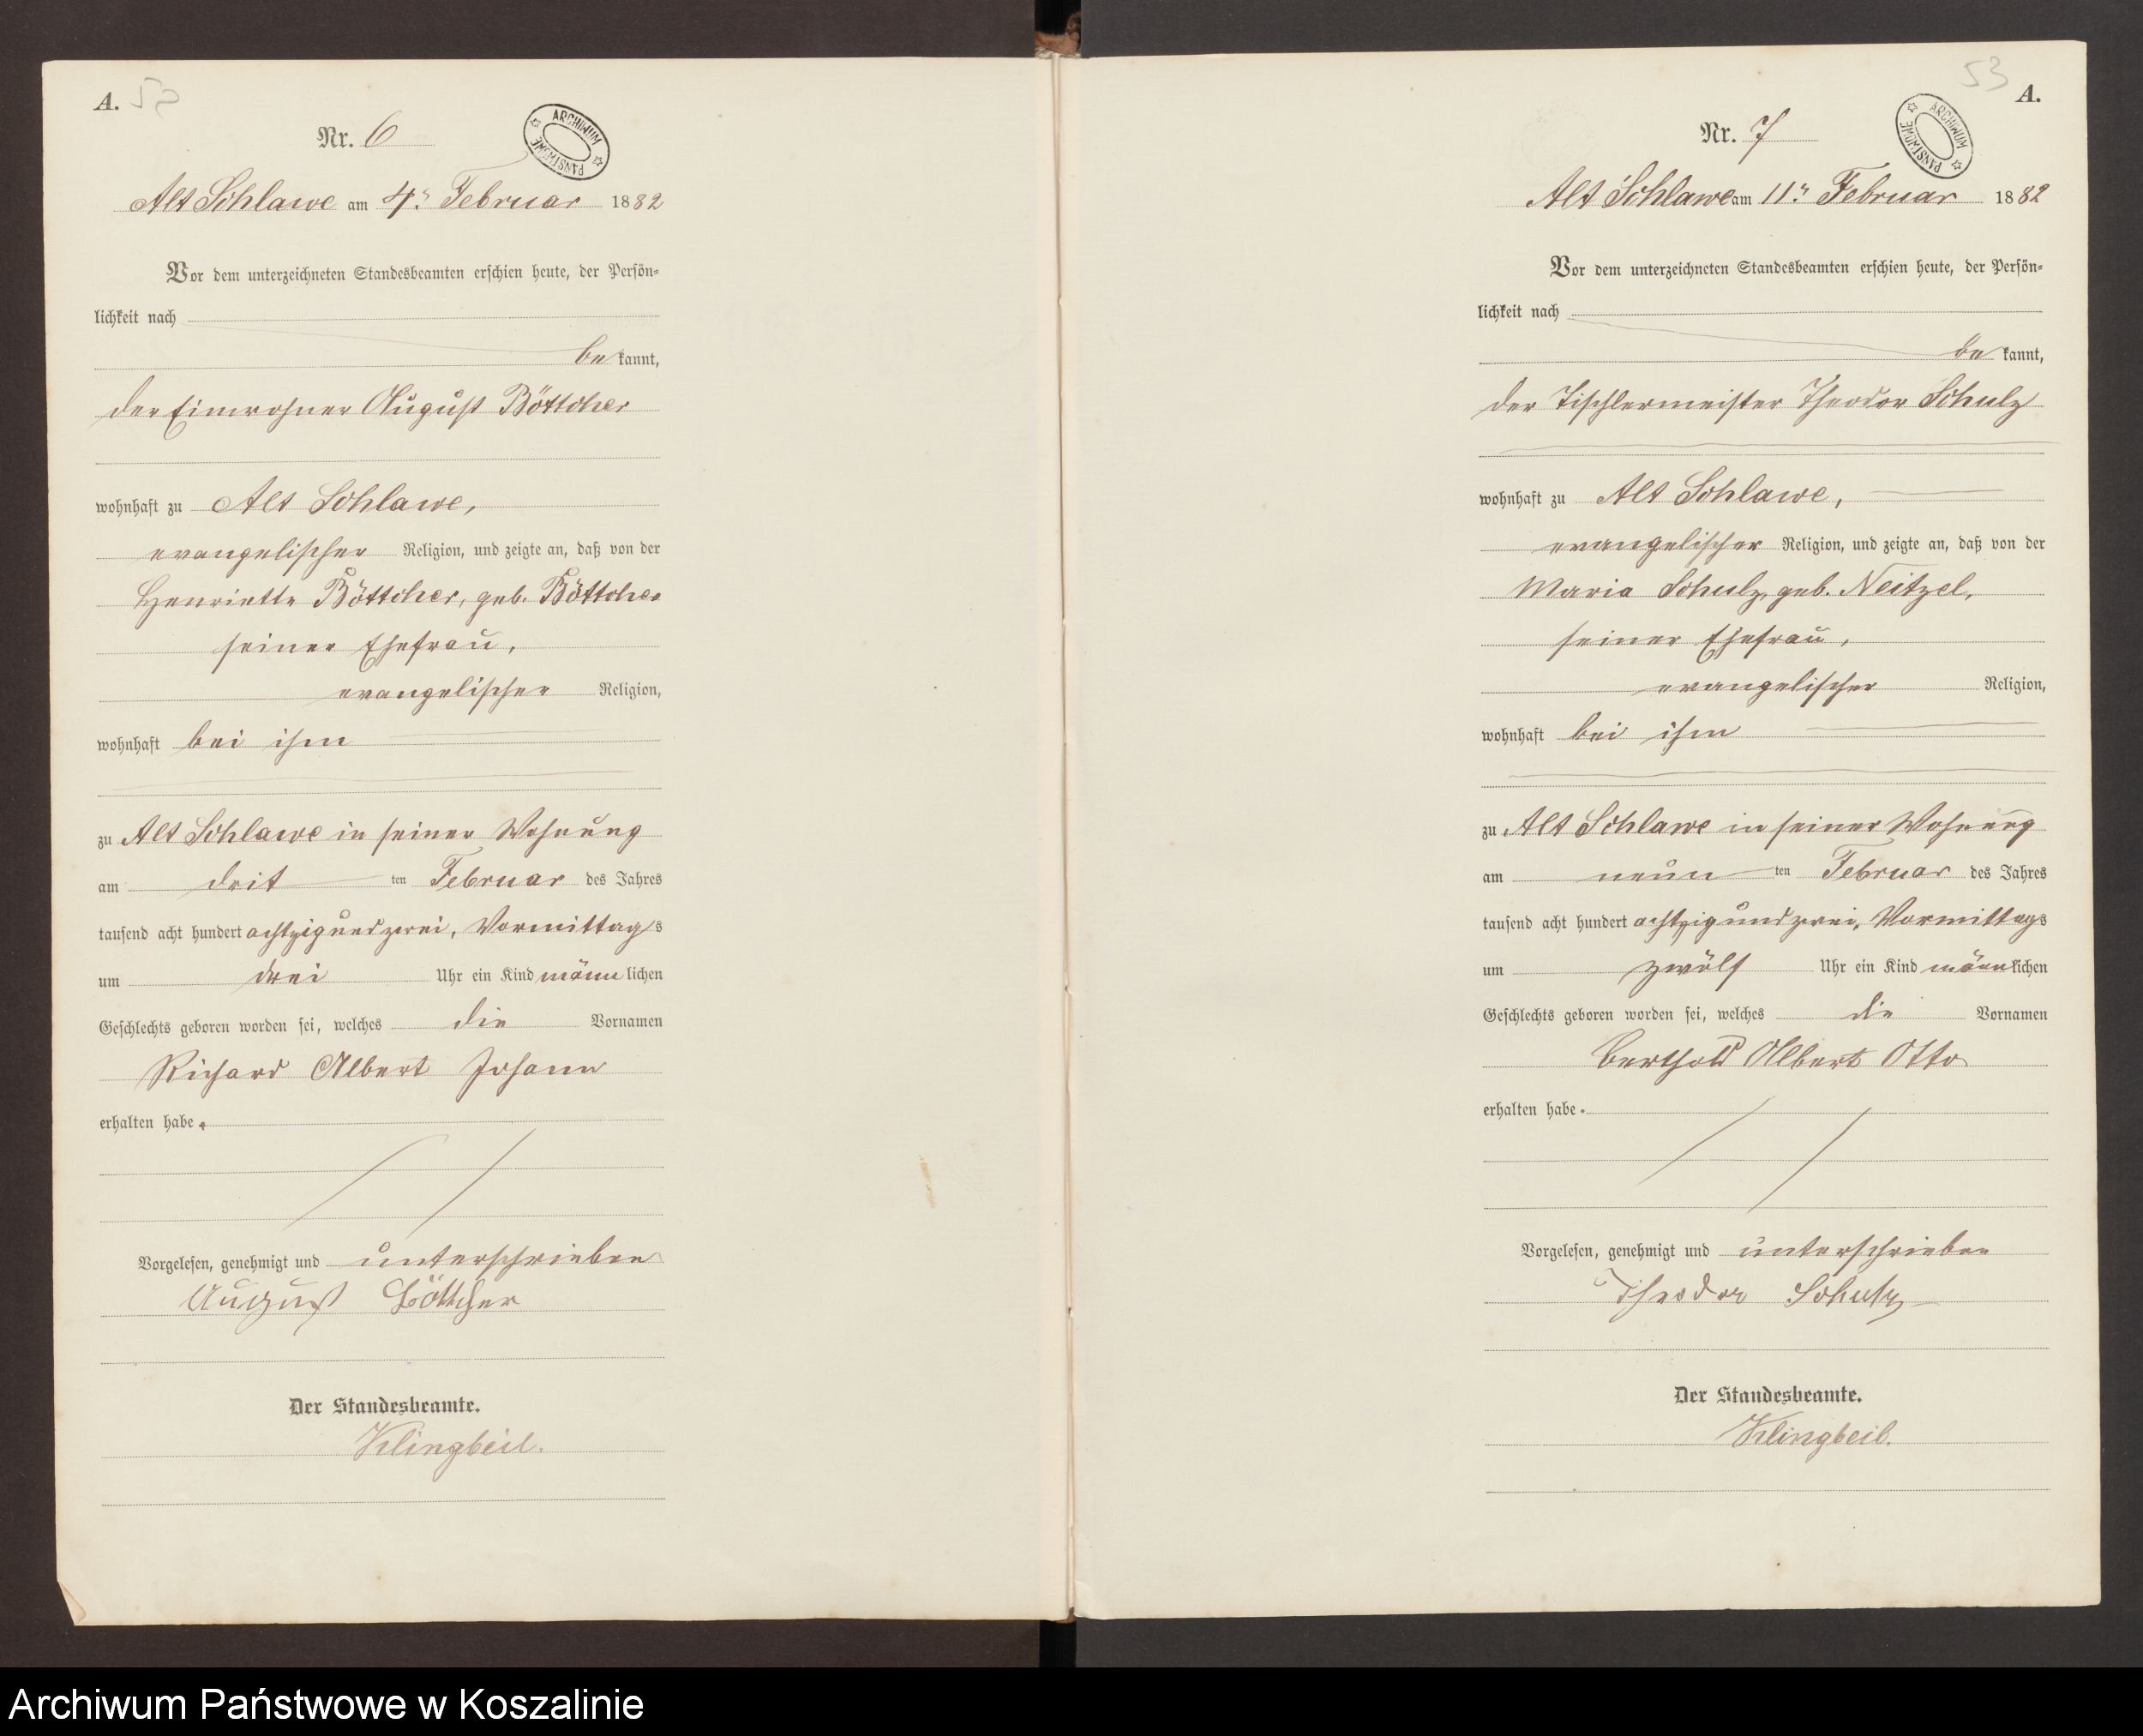 A. 52
Nr. 6
ARCHIWUM PAŃSTWOWE
Alt Schlawe am 4ᵗ Februar 1882
Vor dem unterzeichneten Standesbeamten erschien heute, der Persön-
lichkeit nach
be kannt,
der Einwohner August Böttcher
wohnhaft zu Alt Schlawe,
evangelischer Religion, und zeigte an, daß von der
Henriette Böttcher, geb. Böttcher
seiner Ehefrau,
evangelischer Religion,
wohnhaft bei ihm
zu Alt Schlawe in seiner Wohnung
am drit ten Februar des Jahres
tausend acht hundert achtzig und zwei, Vormittags
um drei Uhr ein Kind männlichen
Geschlechts geboren worden sei, welches die Vornamen
Richard Albert Johann
erhalten habe.
Vorgelesen, genehmigt und unterschrieben
August Böttcher
Der Standesbeamte.
Klingbeil.
53 A.
Nr. 7
ARCHIWUM PAŃSTWOWE
Alt Schlawe am 11ᵗ Februar 1882
Vor dem unterzeichneten Standesbeamten erschien heute, der Persön-
lichkeit nach
be kannt,
der Tischlermeister Theodor Schulz
wohnhaft zu Alt Schlawe,
evangelischer Religion, und zeigte an, daß von der
Maria Schulz, geb. Neitzel,
seiner Ehefrau,
evangelischer Religion,
wohnhaft bei ihm
zu Alt Schlawe in seiner Wohnung
am neun ten Februar des Jahres
tausend acht hundert achtzig und zwei, Vormittags
um zwölf Uhr ein Kind männlichen
Geschlechts geboren worden sei, welches die Vornamen
Berthold Albert Otto
erhalten habe.
Vorgelesen, genehmigt und unterschrieben
Theodor Schulz
Der Standesbeamte.
Klingbeil.
Archiwum Państwowe w Koszalinie